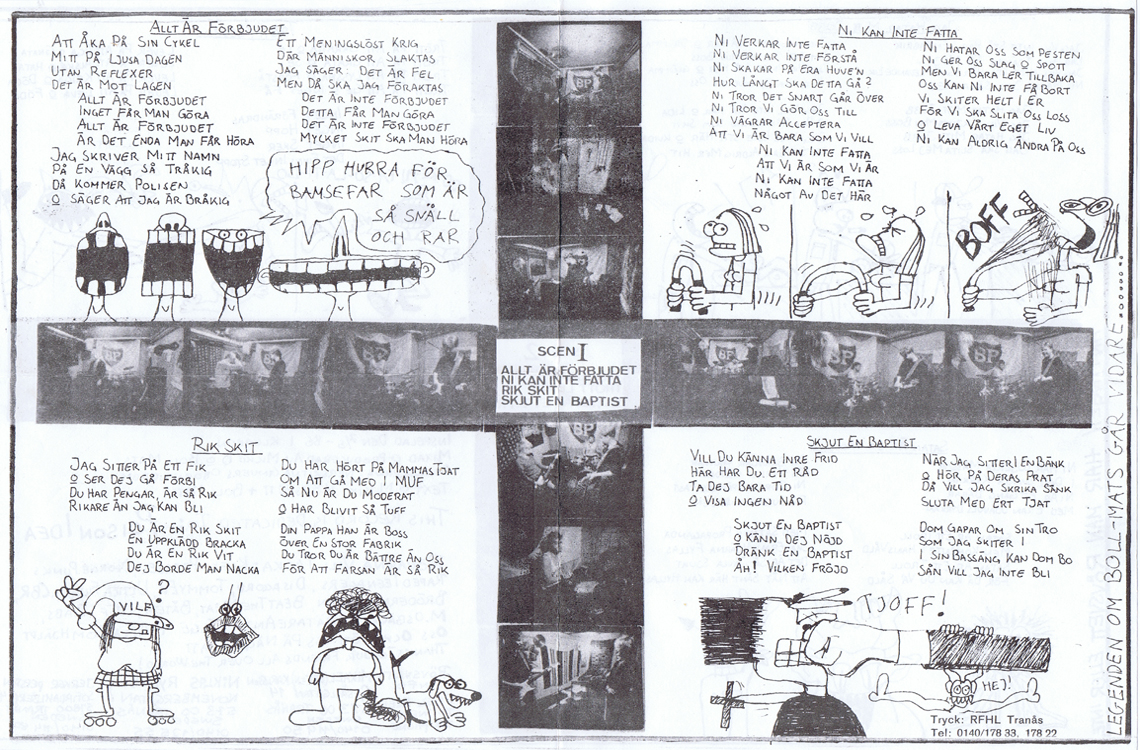 ALLT ÄR FÖRBJUDET
ATT ÅKA PÅ SIN CYKEL
MITT PÅ LJUSA DAGEN
UTAN REFLEXER
DET ÄR MOT LAGEN
ALLT ÄR FÖRBJUDET
INGET FÅR MAN GÖRA
ALLT ÄR FÖRBJUDET
ÄR DET ENDA MAN FÅR HÖRA
JAG SKRIVER MITT NAMN
PÅ EN VÄGG SÅ TRÅKIG
DÅ KOMMER POLISEN
O SÄGER ATT JAG ÄR BRÅKIG
ETT MENINGSLÖST KRIG
DÄR MÄNNISKOR SLAKTAS
JAG SÄGER: DET ÄR FEL
MEN DÅ SKA JAG FÖRAKTAS
DET ÄR INTE FÖRBJUDET
DETTA FÅR MAN GÖRA
DET ÄR INTE FÖRBJUDET
MYCKET SKIT SKA MAN HÖRA
HIPP HURRA FÖR
BAMSEFAR SOM ÄR
SÅ SNÄLL
OCH RAR
NI KAN INTE FATTA
NI VERKAR INTE FATTA
NI VERKAR INTE FÖRSTÅ
NI SKAKAR PÅ ERA HUVE'N
HUR LÅNGT SKA DETTA GÅ?
NI TROR DET SNART GÅR ÖVER
NI TROR VI GÖR OSS TILL
NI VÄGRAR ACCEPTERA
ATT VI ÄR BARA SOM VI VILL
NI KAN INTE FATTA
ATT VI ÄR SOM VI ÄR
NI KAN INTE FATTA
NÅGOT AV DET HÄR
NI HATAR OSS SOM PESTEN
NI GER OSS SLAG O SPOTT
MEN VI BARA LER TILLBAKA
OSS KAN NI INTE FÅ BORT
VI SKITER HELT I ER
FÖR VI SKA SLITA OSS LOSS
O LEVA VÅRT EGET LIV
NI KAN ALDRIG ÄNDRA PÅ OSS
BOFF
BP
SCEN I
ALLT ÄR FÖRBJUDET
NI KAN INTE FATTA
RIK SKIT
SKJUT EN BAPTIST
RIK SKIT
JAG SITTER PÅ ETT FIK
O SER DEJ GÅ FÖRBI
DU HAR PENGAR, ÄR SÅ RIK
RIKARE ÄN JAG KAN BLI
DU ÄR EN RIK SKIT
EN UPPKLÄDD BRACKA
DU ÄR EN RIK VIT
DEJ BORDE MAN NACKA
DU HAR HÖRT PÅ MAMMAS TJAT
OM ATT GÅ MED I MUF
SÅ NU ÄR DU MODERAT
O HAR BLIVIT SÅ TUFF
DIN PAPPA HAN ÄR BOSS
ÖVER EN STOR FABRIK
DU TROR DU ÄR BÄTTRE ÄN OSS
FÖR ATT FARSAN ÄR SÅ RIK
VILF
?
SKJUT EN BAPTIST
VILL DU KÄNNA INRE FRID
HÄR HAR DU ETT RÅD
TA DEJ BARA TID
O VISA INGEN NÅD
SKJUT EN BAPTIST
O KÄNN DEJ NÖJD
DRÄNK EN BAPTIST
ÅH! VILKEN FRÖJD
NÄR JAG SITTER I EN BÄNK
O HÖR PÅ DERAS PRAT
DÅ VILL JAG SKRIKA SÄNK
SLUTA MED ERT TJAT
DOM GAPAR OM SIN TRO
SOM JAG SKITER I
I SIN BASSÄNG KAN DOM BO
SÅN VILL JAG INTE BLI
TJOFF!
HEJ!
Tryck: RFHL Tranås
Tel: 0140/178 33, 178 22
LEGENDEN OM BOLL-MATS GÅR VIDARE........